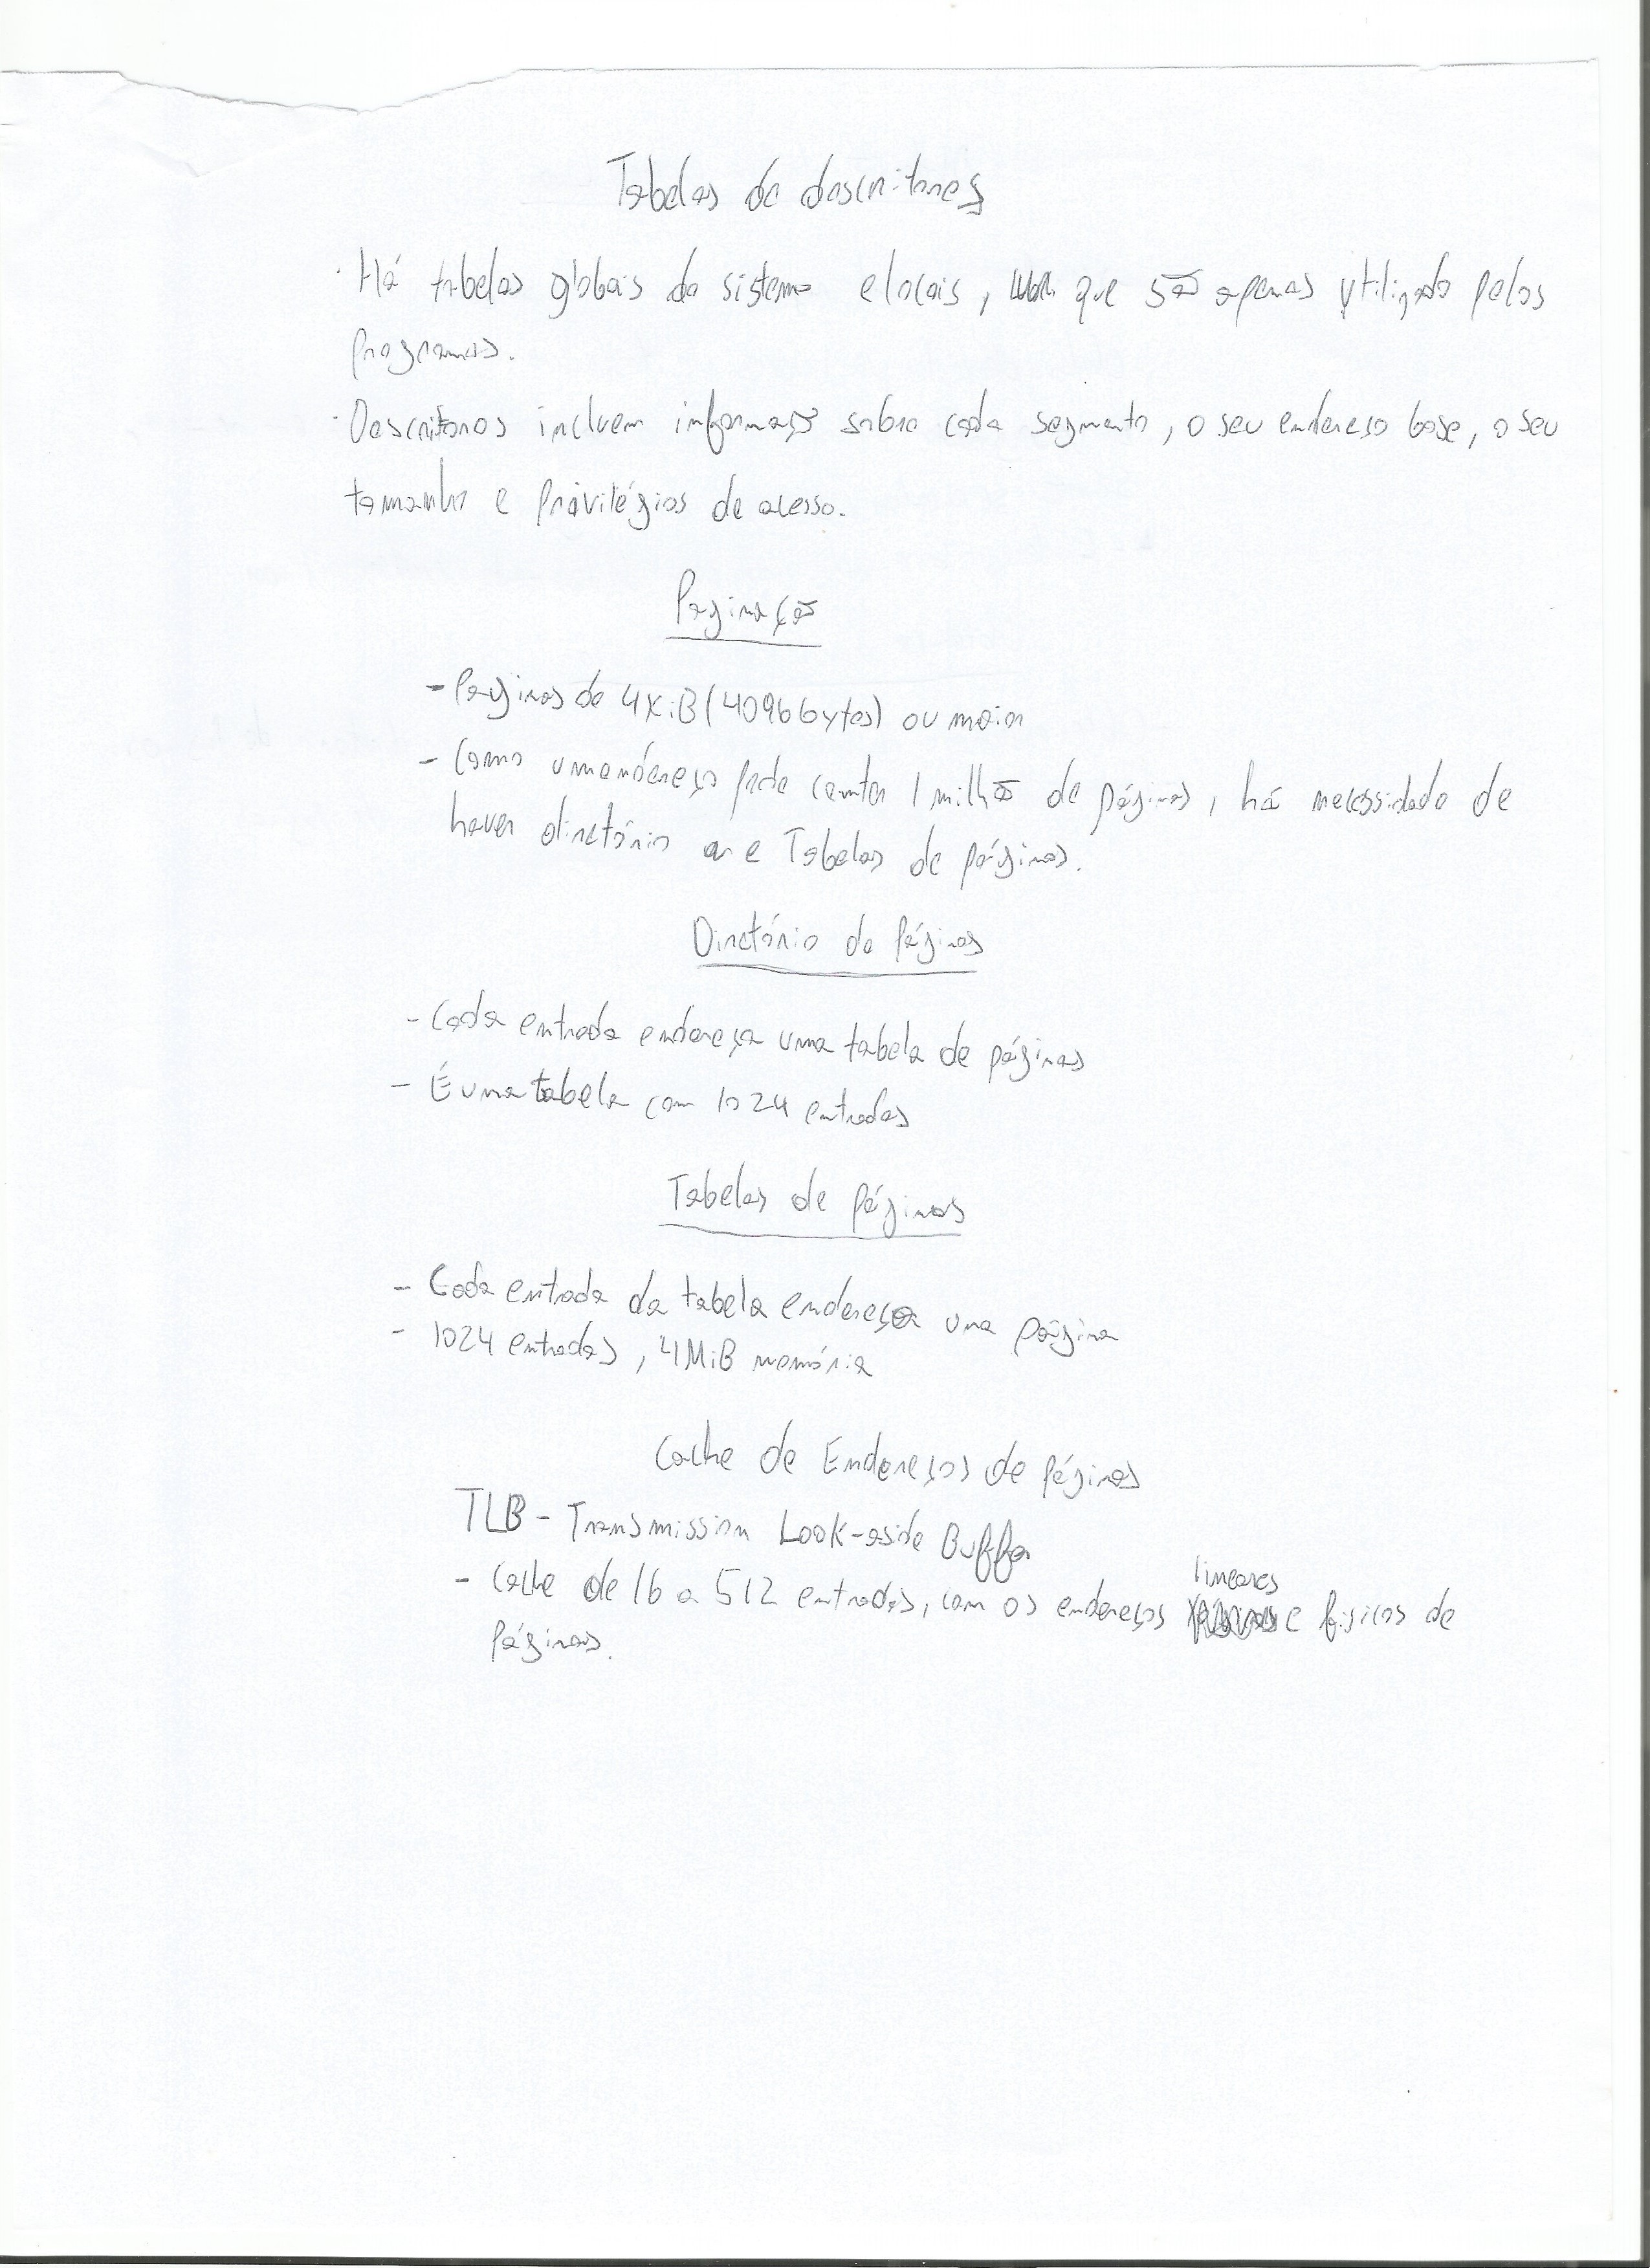 Tabelas de descritores
· Há tabelas globais do sistema e locais, que são apenas utilizado pelos
programas.
· Descritores incluem informação sobre cada segmento, o seu endereço base, o seu
tamanho e privilégios de acesso.
Paginação
- Paginas de 4KiB (4096 bytes) ou maior
- Como um endereço pode conter 1 milhão de páginas, há necessidade de
haver directório e Tabelas de páginas.
Directório de Páginas
- Cada entrada endereça uma tabela de páginas
- É uma tabela com 1024 entradas
Tabelas de páginas
- Cada entrada da tabela endereça uma página
- 1024 entradas, 4MiB memória
Cache de Endereços de Páginas
TLB - Transmission Look-aside Buffer
- Cache de 16 a 512 entradas, com os endereços lineares e fisicos de
páginas.